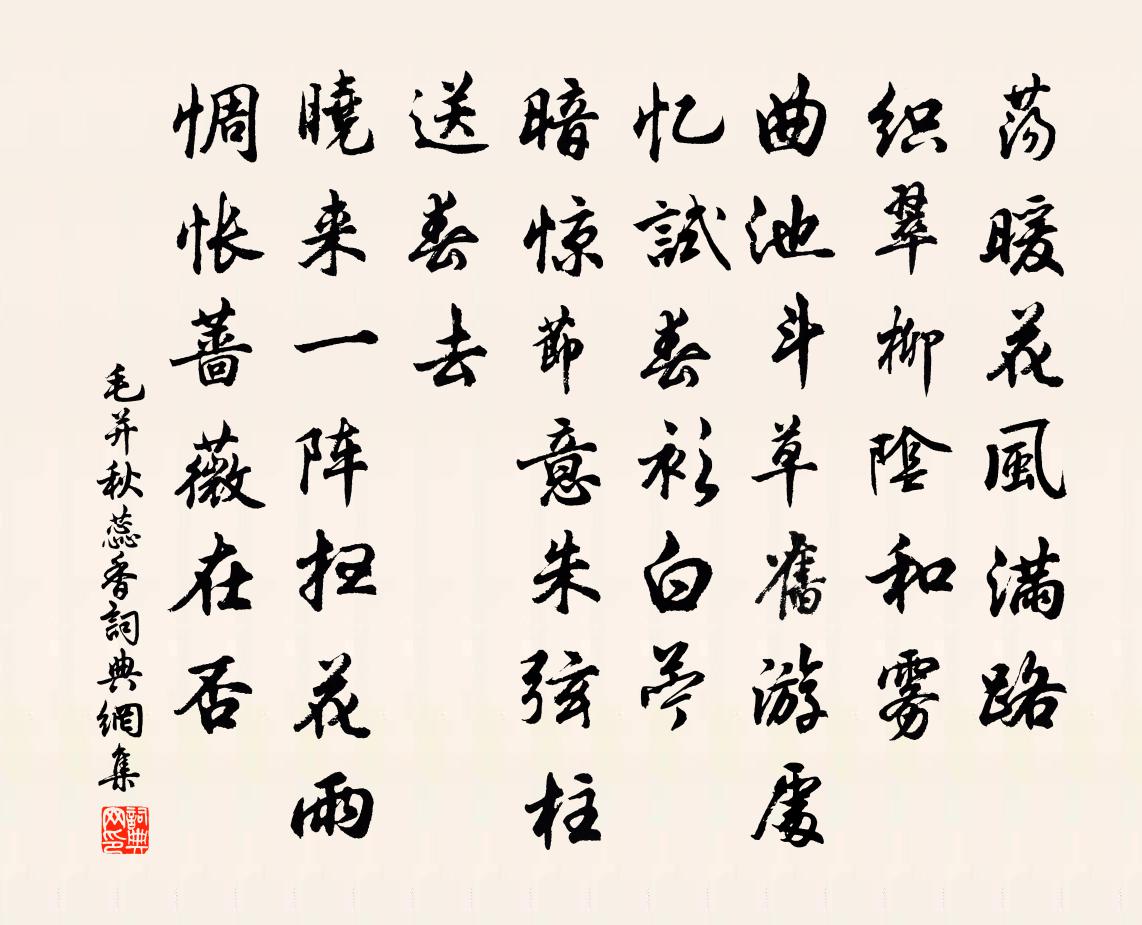 荡暖花風满路
织翠柳陰和雾
曲池斗草舊游處
忆試春衫白苎
暗惊節意朱弦柱
送春去
曉来一阵扫花雨
惆怅蔷薇在否
毛幵秋蕊香詞典網集
詞典网印